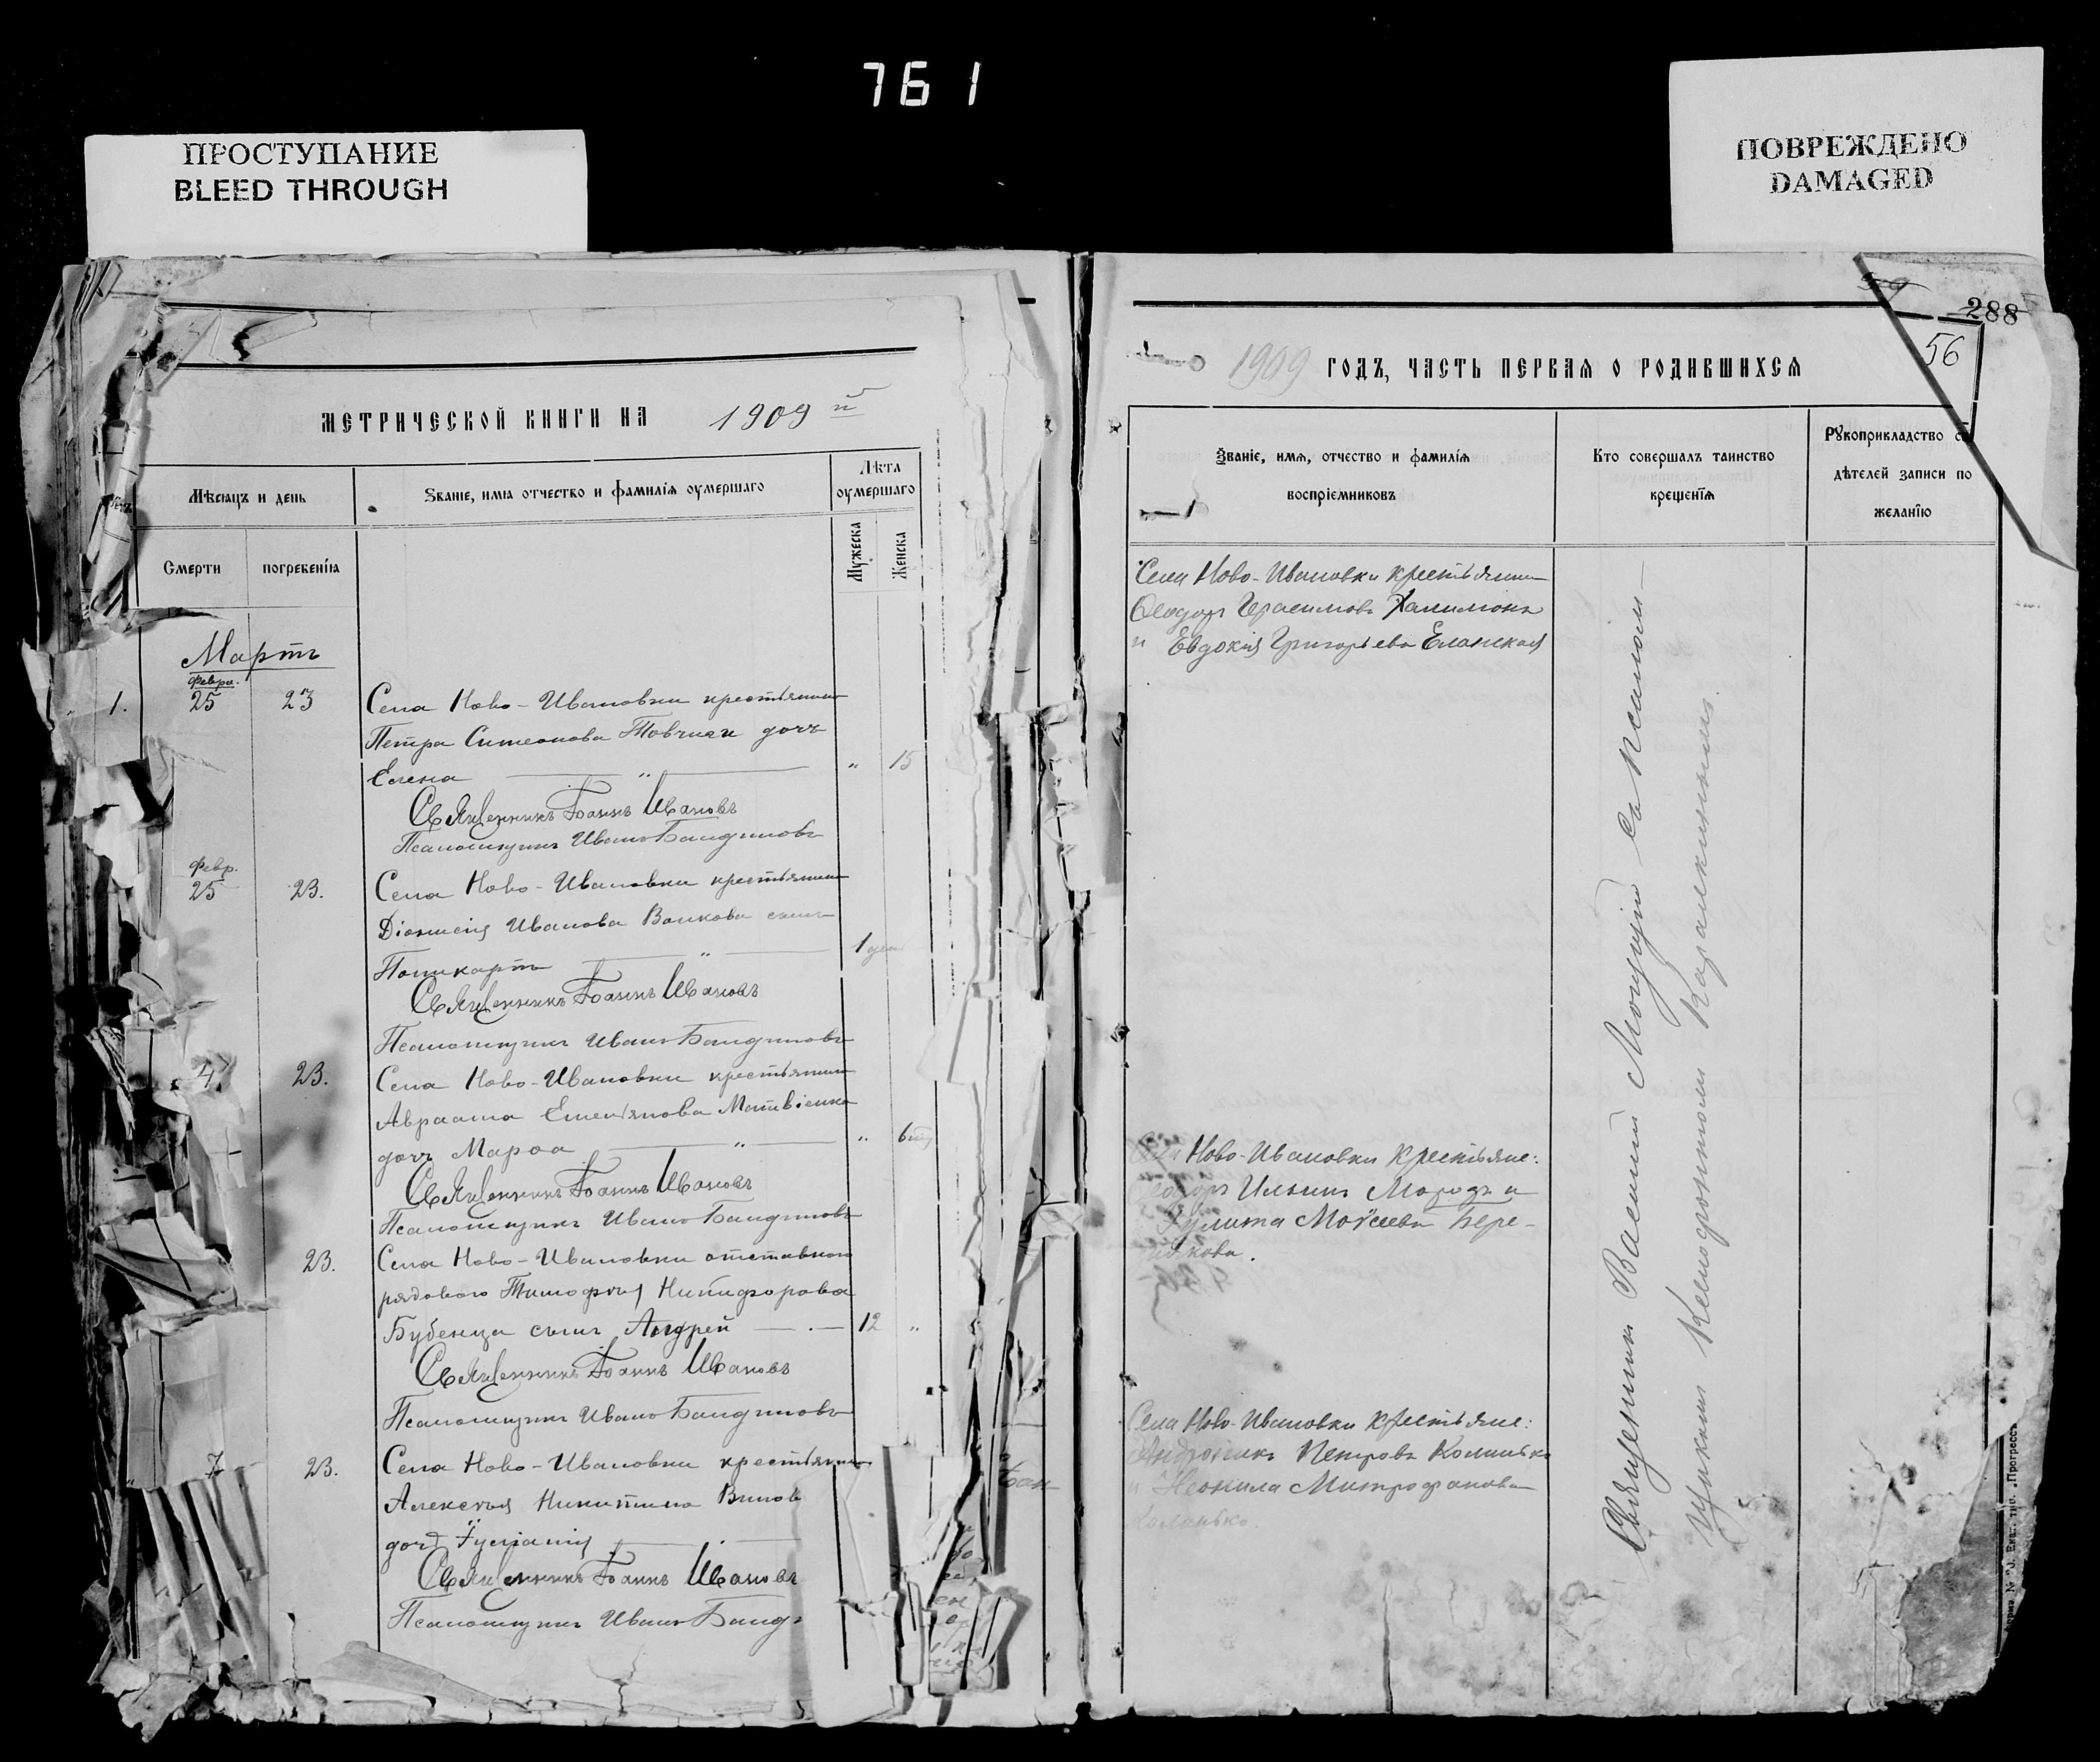 761
ПРОСТУПАНИЕ
BLEED THROUGH
ПОВРЕЖДЕНО
DAMAGED
МЕТРИЧЕСКОЙ КНИГИ НА 1909 й
Мѣсяцъ и день
Званіе, имя отчество и фамилія оумершаго
Лѣта оумершаго
Смерти
погребенія
Мужеска
Женска
Мартъ
1.
Февр.
25
23
Села Ново-Ивановки крестьянина
Петра Симеонова дочь
Елена " " 15
Священникъ Іоаннъ Ивановъ
Псаломщикъ Иванъ
Февр.
25
23.
Села Ново-Ивановки крестьянина
Иванова Волкова сынъ
Поликарпъ " 1 день
Священникъ Іоаннъ Ивановъ
Псаломщикъ Иванъ
4
23.
Села Ново-Ивановки крестьянина
Авраама Емельянова Матвіенка
дочь Марѳа " " 6
Священникъ Іоаннъ Ивановъ
Псаломщикъ Иванъ
23.
Села Ново-Ивановки отставного
рядового Тимофея Никифорова
Бубенца сынъ Андрей 12 "
Священникъ Іоаннъ Ивановъ
Псаломщикъ Иванъ
7
23.
Села Ново-Ивановки крестьянина
Алексѣя Никитина
дочь
Священникъ Іоаннъ Ивановъ
Псаломщикъ Иванъ
288
56
1909 ГОДЪ, ЧАСТЬ ПЕРВАЯ О РОДИВШИХСЯ
Званіе, имя, отчество и фамилія
воспріемниковъ
Кто совершалъ таинство
крещенія
Рукоприкладство
дѣтелей записи по
желанію
Села Ново-Ивановки крестьянин
Ѳеодоръ Герасимовъ Халимонъ
и Евдокія Григорьева Еланская
Ново-Ивановки крестьяне:
Ильинъ Морозъ и
Моѵсеева Бере-
Села Ново-Ивановки крестьяне:
Андроникъ Петровъ
и Неонила Митрофанова
Священникъ Василій съ псалом-
щикомъ